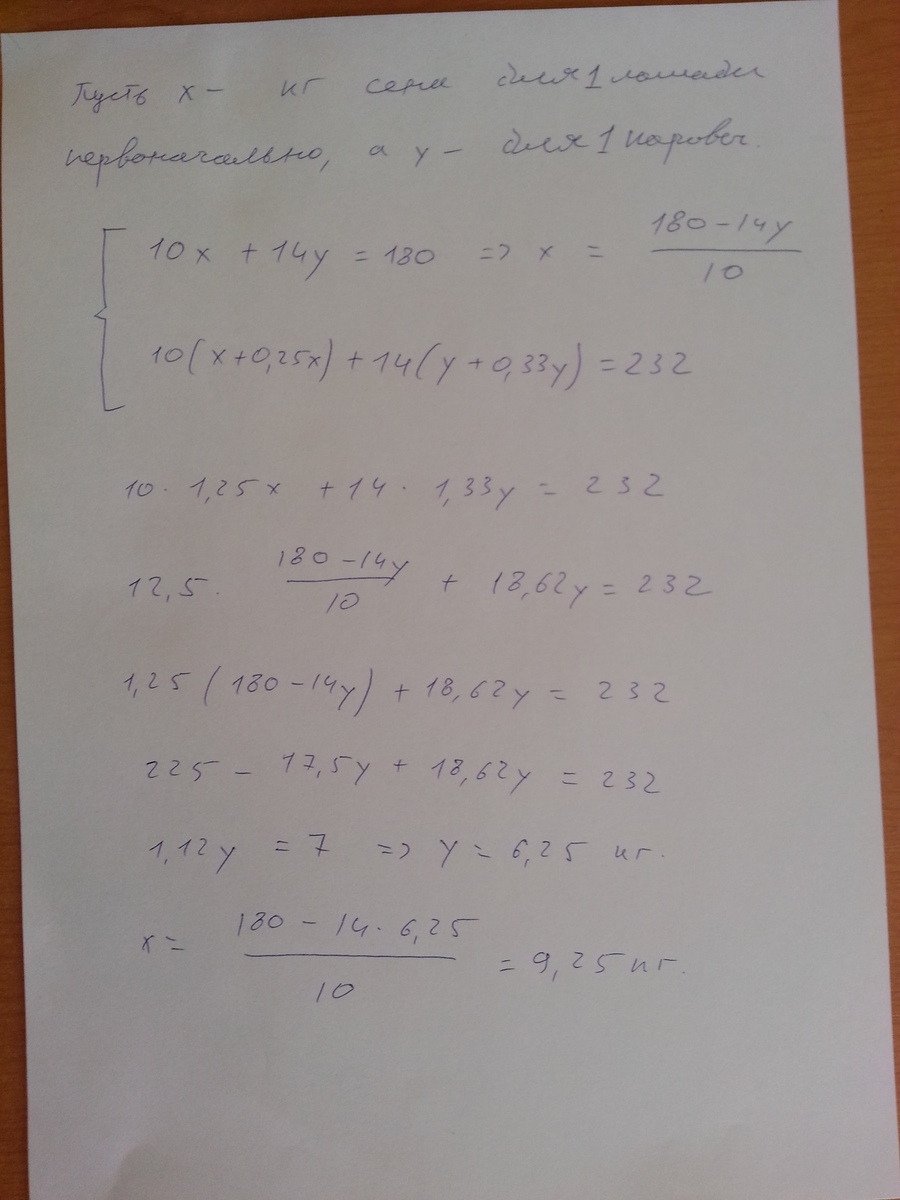 Пусть x – кг сена для 1 лошади
первоначально, а y – для 1 коровы.
10x + 14y = 180 => x = (180 – 14y)/10
10(x+0,25x) + 14(y+0,33y) = 232
10 · 1,25x + 14 · 1,33y = 232
12,5 · (180 – 14y)/10 + 18,62y = 232
1,25 (180 – 14y) + 18,62y = 232
225 – 17,5y + 18,62y = 232
1,12y = 7 => y = 6,25 кг.
x = (180 – 14 · 6,25)/10 = 9,25 кг.